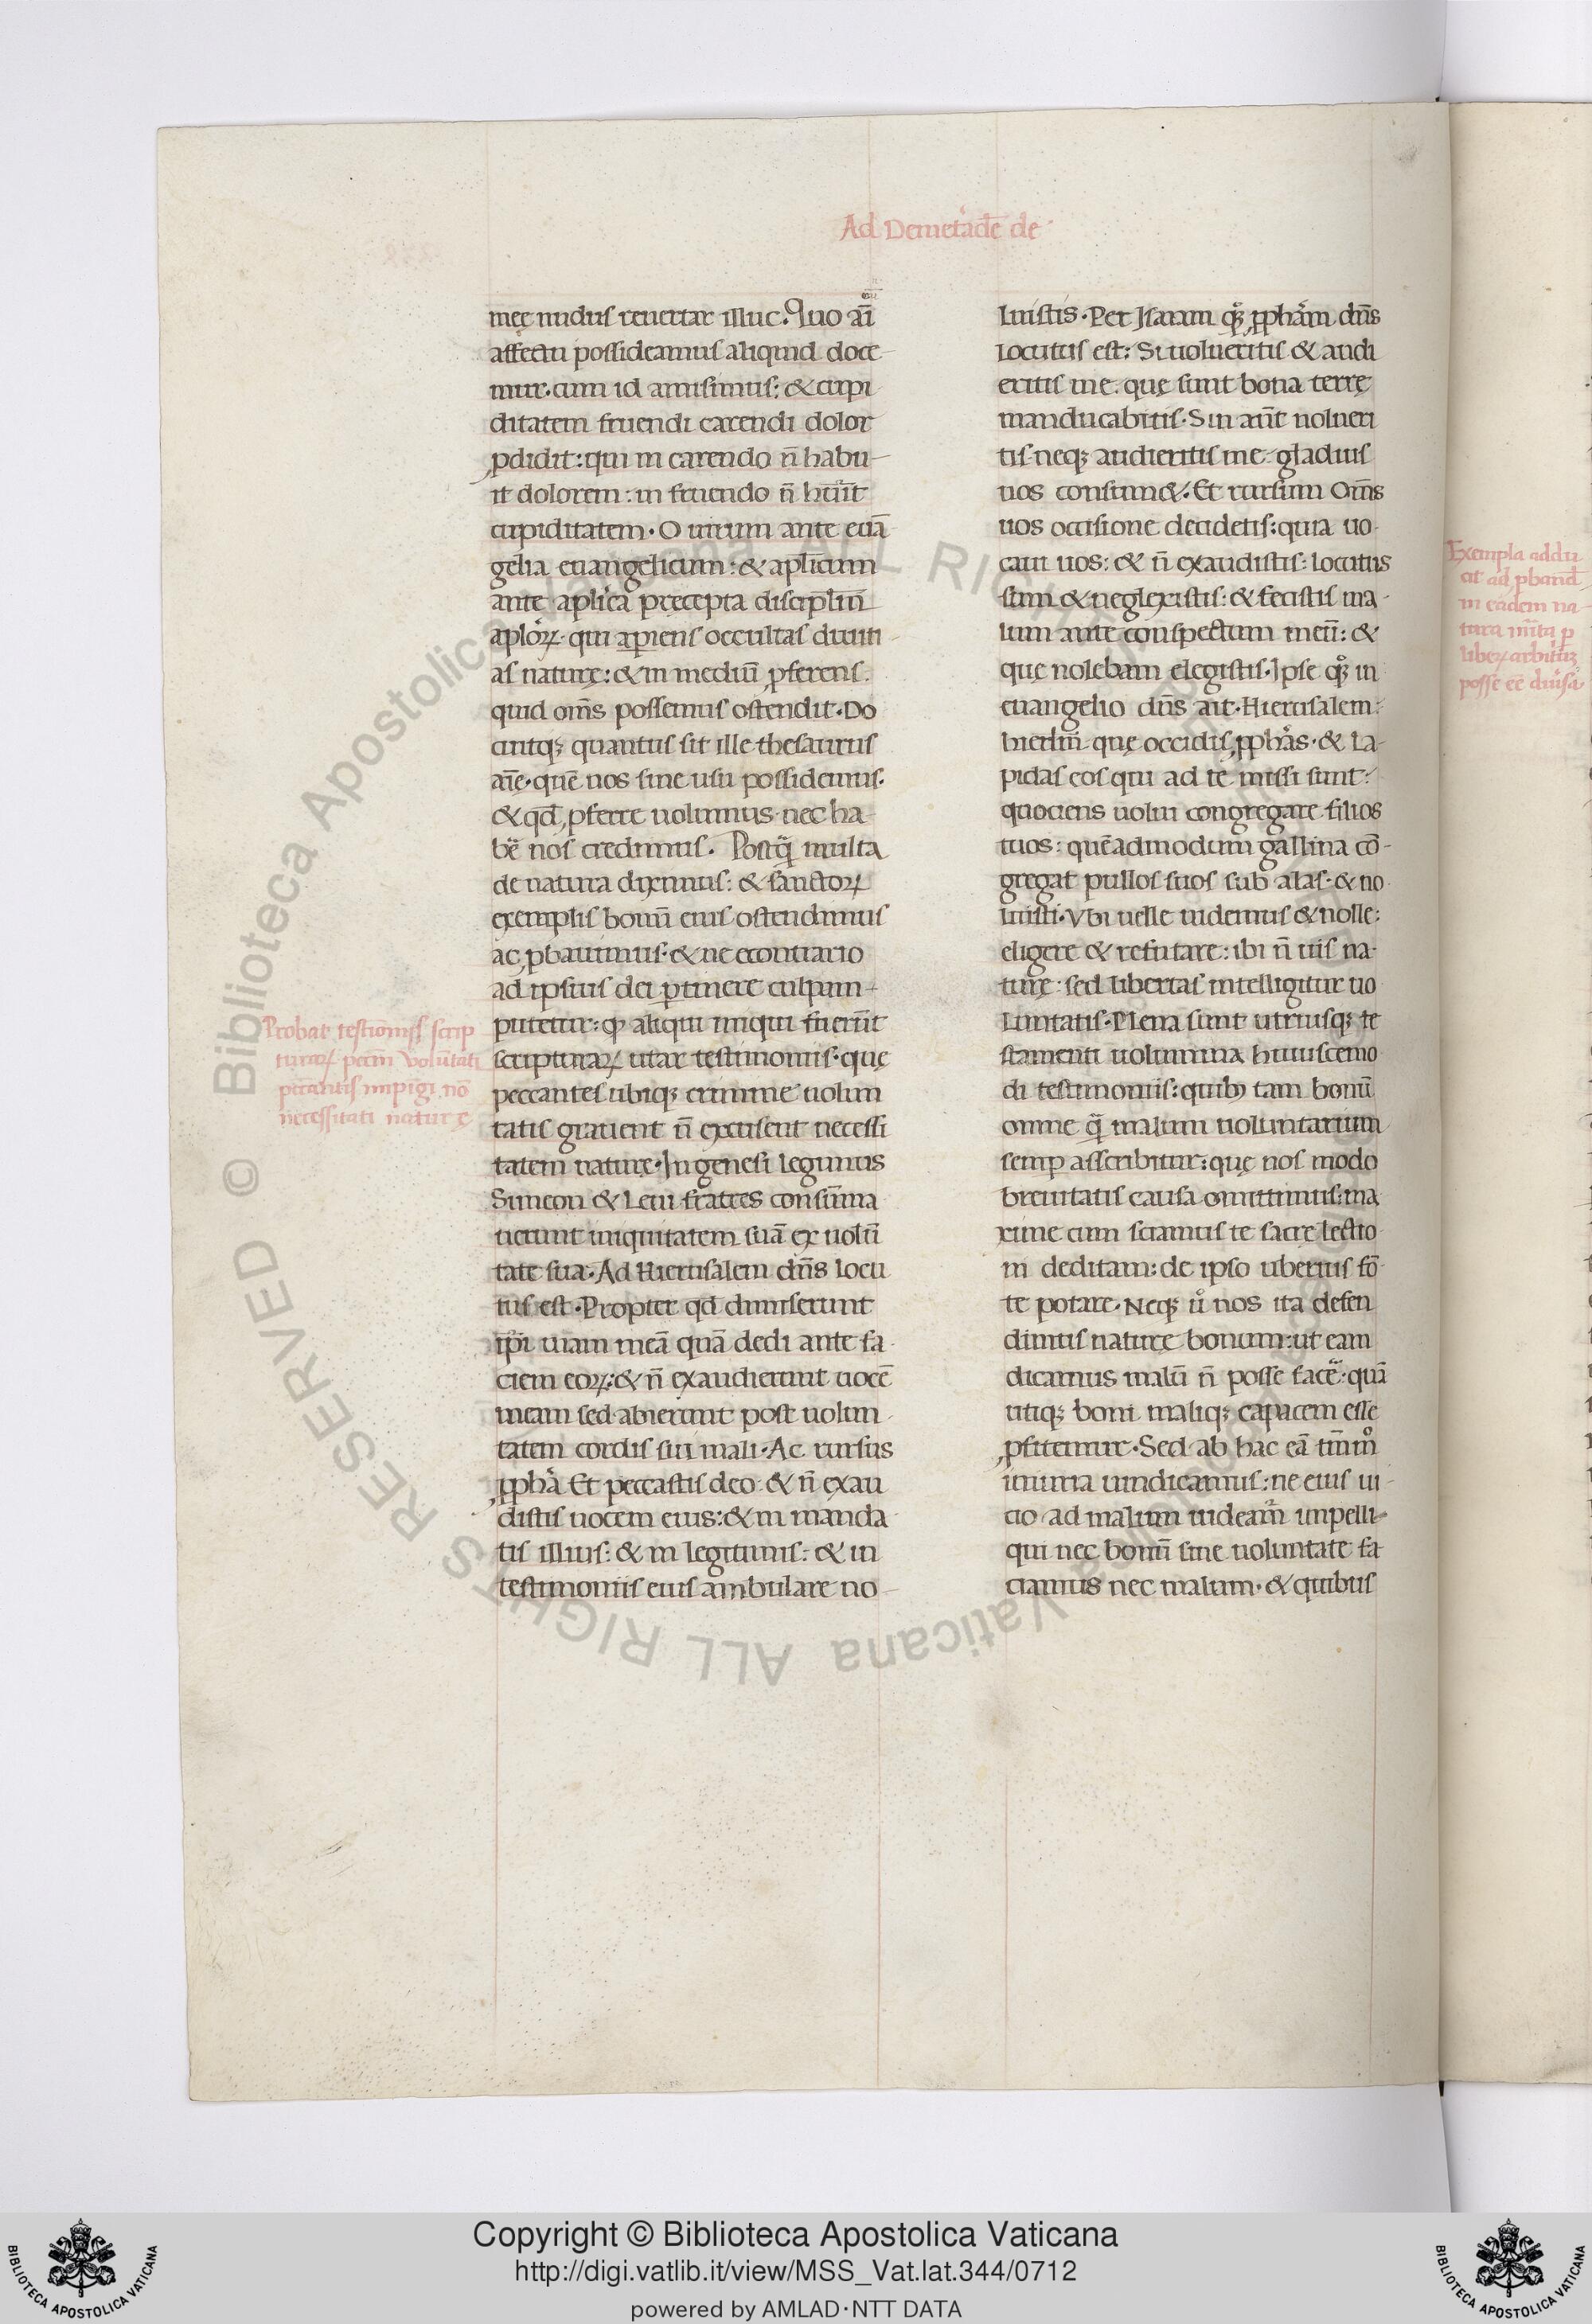 Ad Demet'adē de
meę nudus reuertar illuc. Quo aī
affectu possideamus aliquid doce
mur. cum id amisimus: & cupi
ditatem fruendi carendi dolor
ꝓdidit: qui in carendo n̄ habu
it dolorem: in fruendo n̄ hūit
cupiditatem. O uirum ante euā
gelia euangelicum: & apl̄icum
ante apl̓ica pręcepta disciplin̄
aploꝝ. qui aꝑiens occultas diuiti
as naturę: & in mediū ꝓferens.
quid om̄s possemus ostendit. Do
cuitqꝫ quantus sit ille thesaurus
aīę. quē nos sine usu possidemus.
& qd̄ ꝓferre nolumus nec ha
bē nos credimus. Postq̄ multa
de natura diximus: & sanctoꝝ
exemplis bonū eius ostendimus
ac ꝓbauimus. & ne econtrario
ad ipsius dei ꝑtinere culpam
putetur: ꝙ aliqui iniqui fuerūt
scripturaꝝ utar testimoniis. quę
peccantes ubiqꝫ crimine uolun
tatis grauent n̄ excusent necessi
tatem naturę. In genesi legimus
Simeon & Leui fratres consūma
uerunt iniquitatem suā ex uolū
tate sua. Ad Hierusalem dn̄s locu
tus est. Propter qd dimiserunt
ip̄i uiam meā quā dedi ante fa
ciem eoꝝ: & n̄ exaudierunt uocē
meam sed abierunt post uolun
tatem cordis sui mali. Ac rursus
ꝓphā Et peccastis deo. & n̄ exau
distis uocem eius: & in manda
tis illius: & in legitimis: & in
testimoniis eius ambulare no
Probat testionijs scrip
turaꝝ pccm̄ volūtati
peccantis impīgi nō
necessitati naturę
luistis. Per Isaiam qꝫ ꝓphām dn̄s
locutus est: Si uolueritis & audi
eritis me. quę sunt bona terrę
manducabitis. Sin aūt nolueri
tis neqꝫ audieritis me. gladius
uos consum&. Et rursum Om̄s
uos occisione decidetis: quia uo
caui uos: & n̄ exaudistis: locutus
sum & neglexistis: & fecistis ma
lum ante conspectum meū: &
quę nolebam elegistis. Ipse qꝫ in
euangelio dn̄s ait. Hierusalem:
hierl̄m quę occidis ꝓphas. & la
pidas eos qui ad te missi sunt:
quociens uolui congregare filios
tuos: quēadmodum gallina cō
gregat pullos suos sub alas. & no
luisti. Vbi uelle uidemus & nolle:
eligere & refutare: ibi n̄ uis na
turę: sed libertas intelligitur uo
luntatis. Plena sunt utriusqꝫ te
stamenti uolumina huiuscemo
di testimoniis: quibꝫ tam bonū
omne q̄ malum uoluntarium
semꝑ asscribitur: quę nos modo
breuitatis causa omittimus: ma
xime cum sciamus te sacrę lectio
ni deditam: de ipso uberius fō
te potare. Neqꝫ u̓ nos ita defen
dimus naturę bonum: ut eam
dicamus malū n̄ posse facē. quā
utiqꝫ boni maliqꝫ capacem esse
ꝓfitemur. Sed ab hac eā tm̄mo
iniuria uindicamus: ne eius ui
cio ad malum uideam̄ impelli
qui nec bonū sine uoluntate fa
ciamus nec malum. & quibus
Exempla addu
cit ad ꝓband
in eadem na
tura mīta ꝑ
liberꝝ arbitriū
posse eē diuisa
© Biblioteca Apostolica Vaticana ALL RIGHTS RESERVED
Copyright © Biblioteca Apostolica Vaticana
http://digi.vatlib.it/view/MSS_Vat.lat.344/0712
powered by AMLAD·NTT DATA
BIBLIOTECA APOSTOLICA VATICANA
BIBLIOTECA APOSTOLICA VATICANA